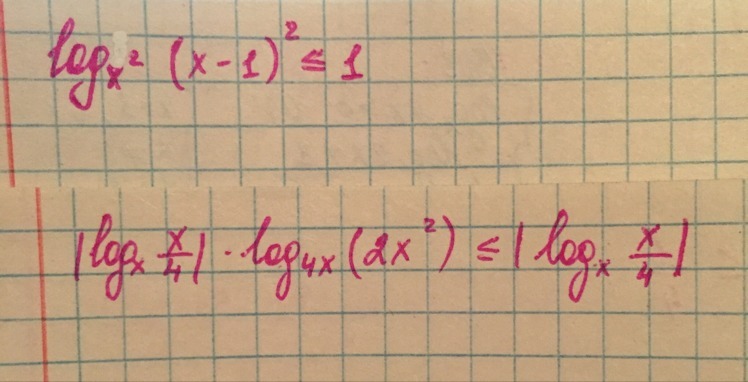 log_{x²} (x-1)² ≤ 1
|log_x x/4| · log_{4x} (2x²) ≤ |log_x x/4|